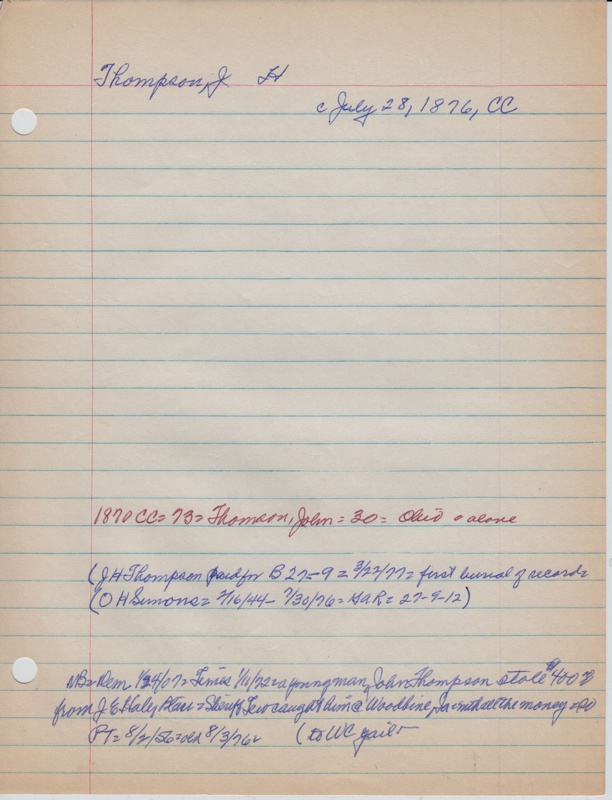 Thompson, J H
c July 28, 1876, CC
1870 CC = 73 = Thomson, John = 30 = Ohio = alone
(J H Thompson paid for B 27-9 = 3/22/77 = first burial of record =
(O H Simons = 2/16/44 - 7/30/76 = GAR = 27-9-12)
NB = Dem 1/24/07 = Times 1/11/72 = a young man, John Thompson stole $400
from J E Haley Parr = Sheriff caught him @ Woodbine, Ia = with all the money =
PT = 8/2/56 = 8/3/76 = (to WC jail -